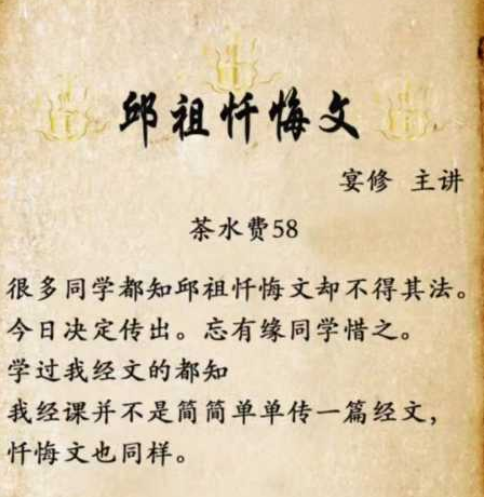 邱祖忏悔文
宴修 主讲
茶水费58
很多同学都知邱祖忏悔文却不得其法。
今日决定传出。忘有缘同学惜之。
学过我经文的都知
我经课并不是简简单单传一篇经文，
忏悔文也同样。